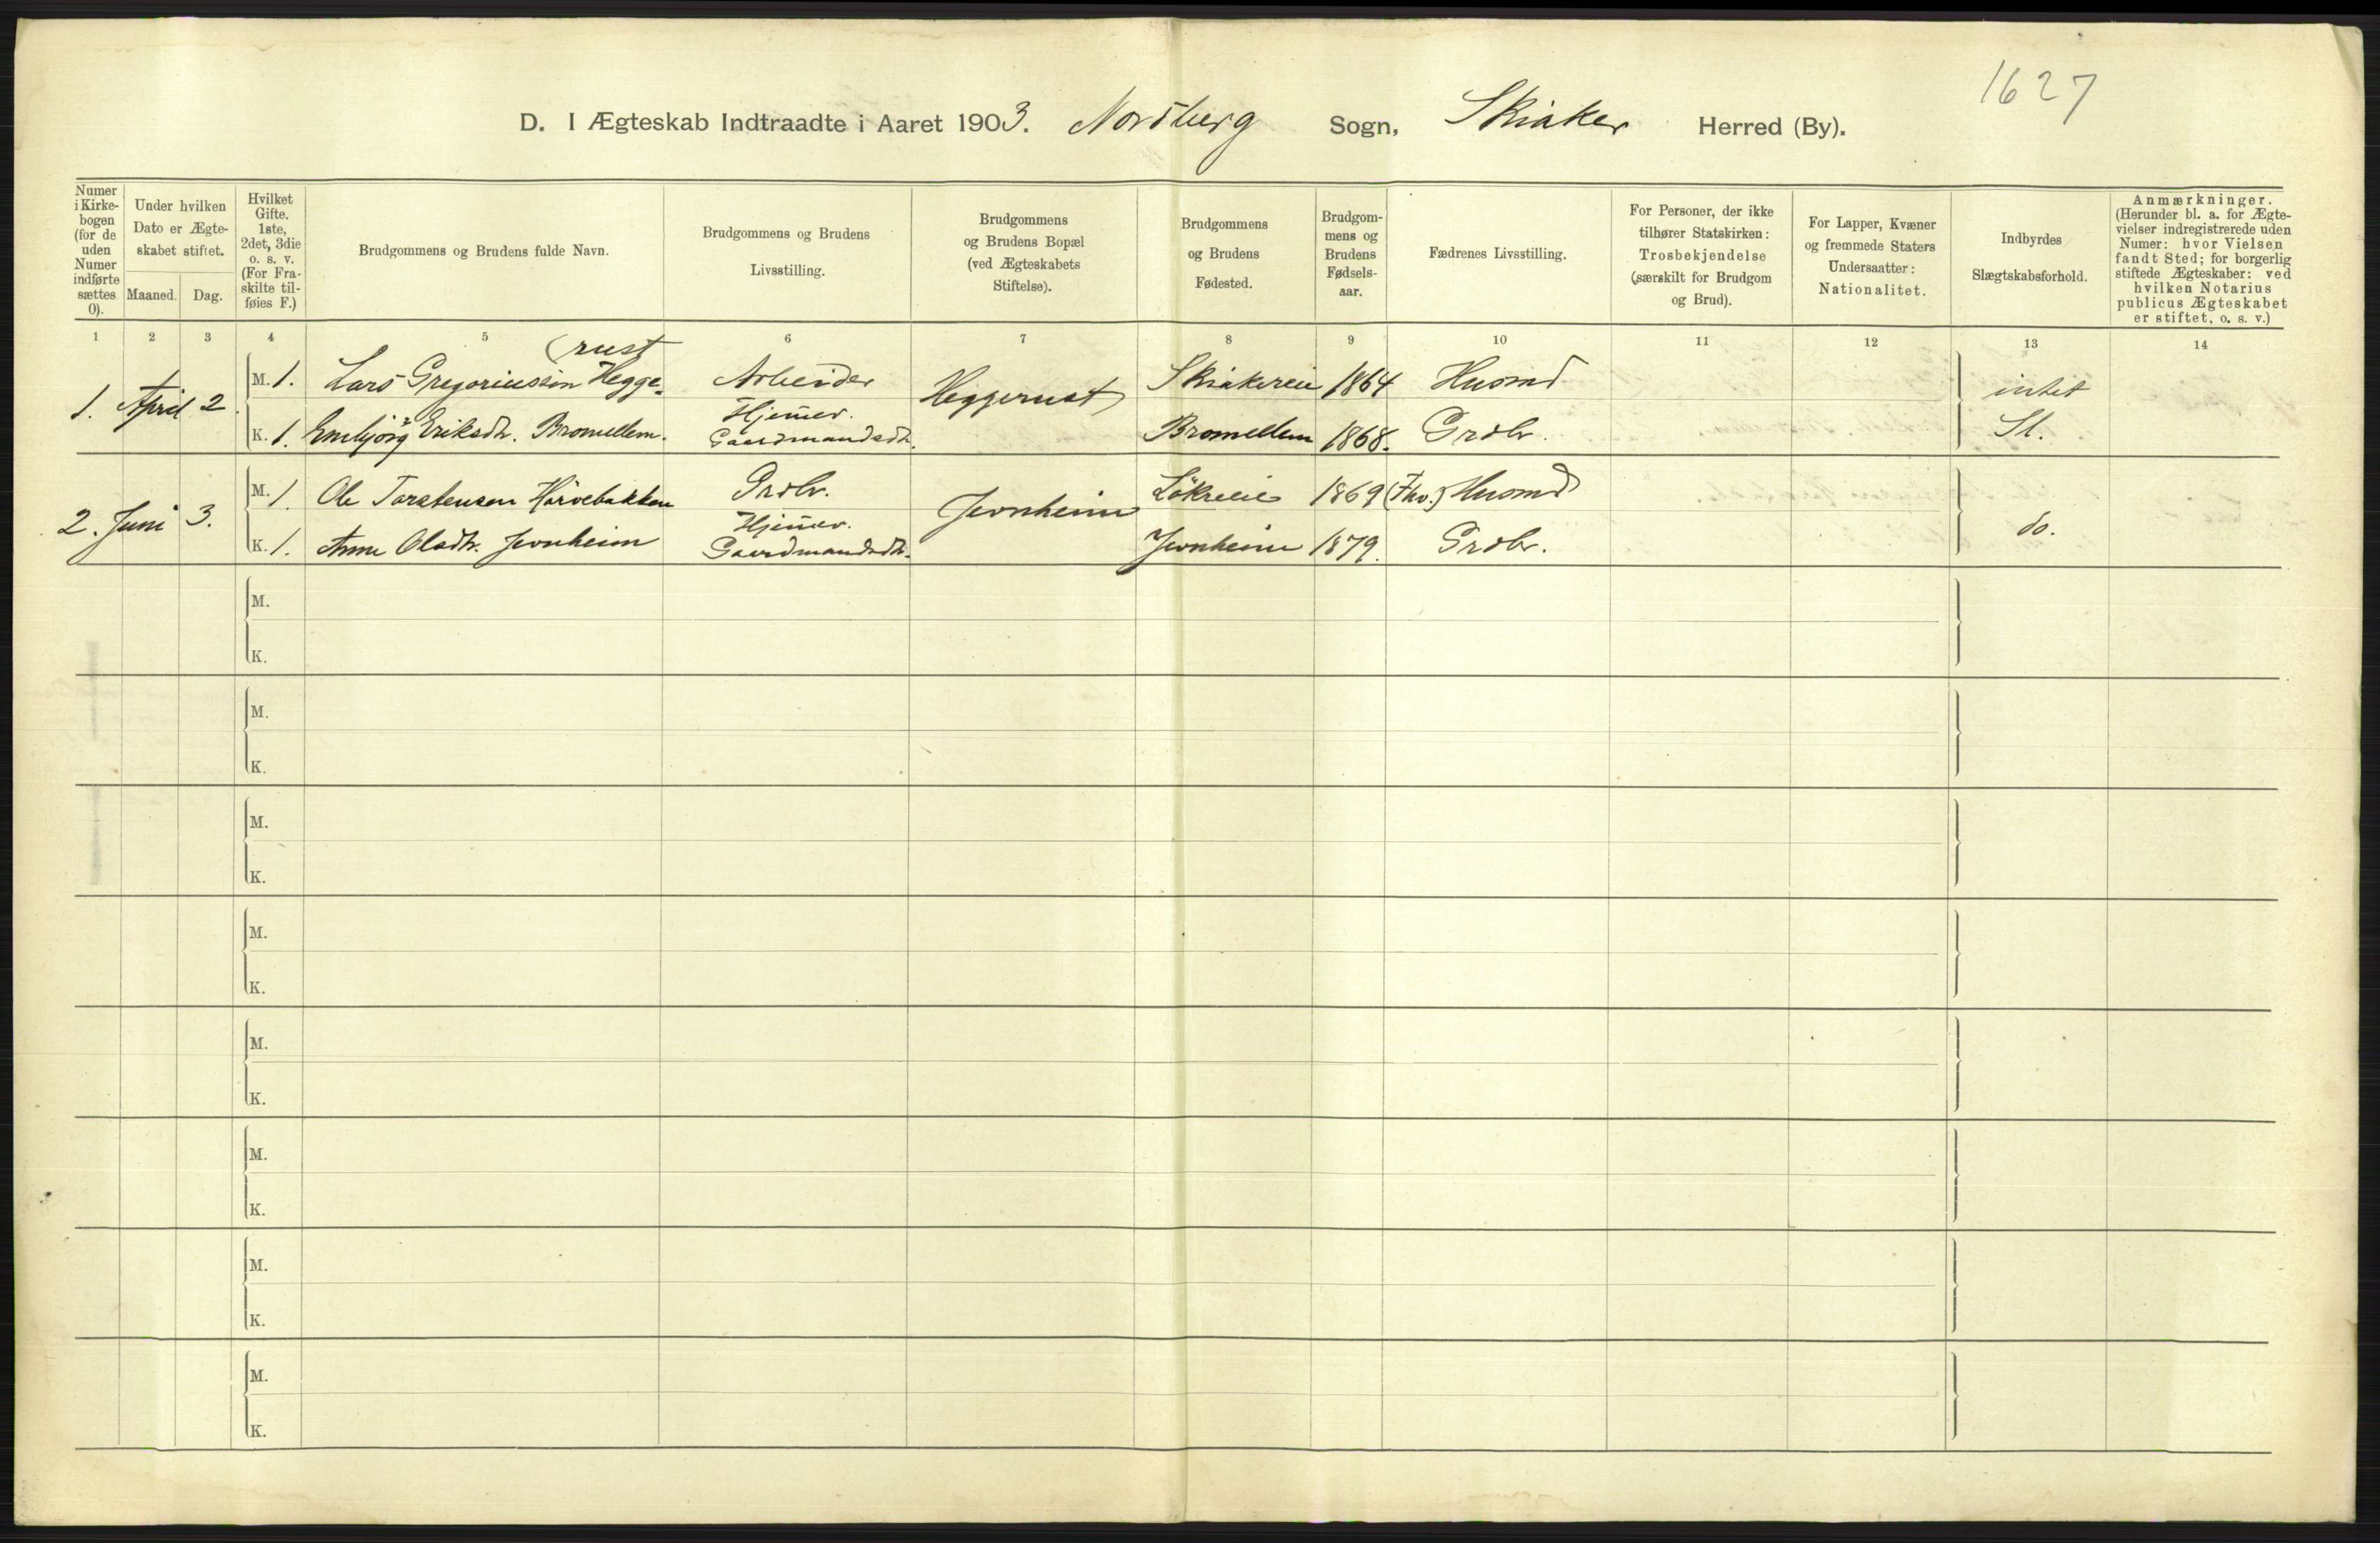 1627
D. I Ægteskab Indtraadte i Aaret 1903. Nordberg Sogn, Skiaker Herred (By).
Numer i Kirkebogen (for de uden Numer indførte sættes 0).
Under hvilken Dato er Ægteskabet stiftet.
Maaned. Dag.
Hvilket Gifte. 1ste, 2det, 3die o. s. v. (For Fraskilte tilføies F.)
Brudgommens og Brudens fulde Navn.
Brudgommens og Brudens Livsstilling.
Brudgommens og Brudens Bopæl (ved Ægteskabets Stiftelse).
Brudgommens og Brudens Fødested.
Brudgommens og Brudens Fødselsaar.
Fædrenes Livsstilling.
For Personer, der ikke tilhører Statskirken: Trosbekjendelse (særskilt for Brudgom og Brud).
For Lapper, Kvæner og fremmede Staters Undersaatter: Nationalitet.
Indbyrdes Slægtskabsforhold.
Anmærkninger. (Herunder bl. a. for Ægtevielser indregistrerede uden Numer: hvor Vielsen fandt Sted; for borgerlig stiftede Ægteskaber: ved hvilken Notarius publicus Ægteskabet er stiftet, o. s. v.)
1 2 3 4 5 6 7 8 9 10 11 12 13 14
(rust
1. April 2. M. 1. Lars Gregoriussøn Hegge- Arbeider Heggerust Skiakereie 1864 Husmd intet
K. 1. Embjörg Eriksdtr. Bromellem. Hjemmev. Gaardmandsdtr. Bromellem 1868. Grdbr. Sl.
2. Juni 3. M. 1. Ole Torstensen Harvebakken Grdbr. Jernheim Lökreeie 1869 Husmd
K. 1. Anne Olsdtr. Jernheim Hjemmev. Gaardmandsdtr. Jernheim 1879. Grdbr. do.
M.
K.
M.
K.
M.
K.
M.
K.
M.
K.
M.
K.
M.
K.
M.
K.